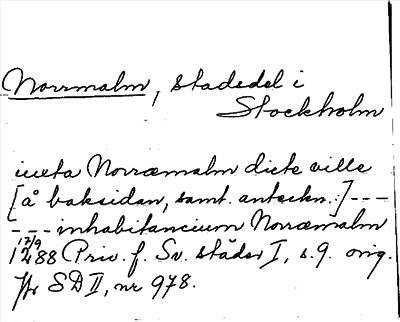 Norrmalm, stadsdel i
Stockholm
iuxta Norræmalm dicte ville
[å baksidan, samt. anteckn.:] ---
--- inhabitancium Norræmalm
17/9
1288 Priv. f. Sv. städer I, s. 9. orig.
Jfr SD II, nr 978.